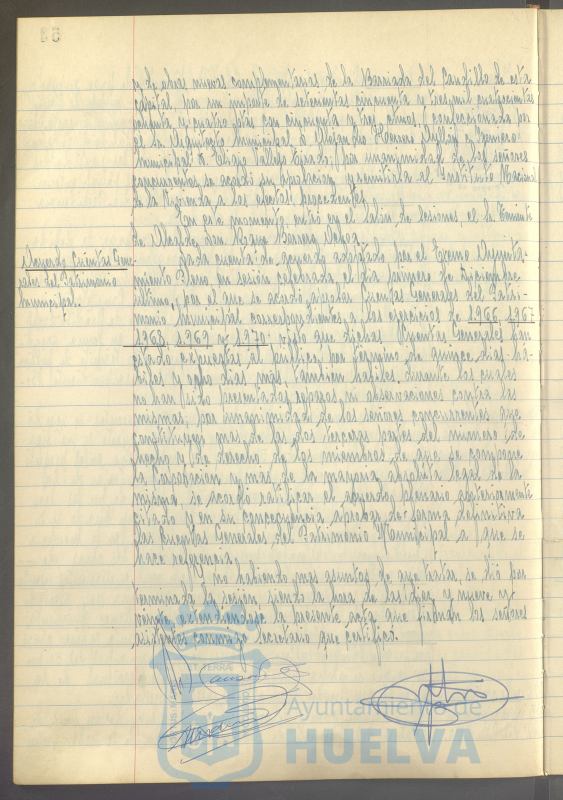 y de obras nuevas complementarias de la Barriada del Caudillo de esta
capital, por un importe de setecientas cincuenta y tres mil cuatrocientas
y cuatro ptas con cincuenta y tres ctmos, confeccionada por
el Sr Arquitecto Municipal D. Alejandro Herrero Ayllon e Ingeniero
Municipal D. Vallejo; por unanimidad de los señores
concurrentes se acordó su aprobacion y remitirla al Instituto Nacional
de la Vivienda a los efectos procedentes.
En este momento entró en el Salón de Sesiones, el Sr Teniente
de Alcalde, Don Borrero
Acuerdo Cuentas Gene-
rales del Patrimonio
Municipal.
Dada cuenta de acuerdo adoptado por el Excmo Ayunta-
miento Pleno en sesión celebrada el día primero de Diciembre
ultimo, por el que se acordó aprobar Cuentas Generales del Patri-
monio Municipal correspondientes a los ejercicios de 1966, 1967
1968, 1969 y 1970, visto que dichas Cuentas Generales han
estado expuestas al publico por término de quince dias há-
biles y ocho dias más, tambien habiles, durante los cuales
no han sido presentados reparos, ni observaciones contra las
mismas; por unanimidad de los señores concurrentes que
constituyen mas de las dos terceras partes del número de
hecho y de derecho de los miembros de que se compone
la Corporacion y mas de la mayoria absoluta legal de la
misma, se acordó ratificar el acuerdo plenario anteriormente
citado y en su consecuencia aprobar de forma definitiva
las Cuentas Generales del Patrimonio Municipal a que se
hace referencia.
Y no habiendo mas asuntos de que tratar, se dió por
terminada la sesión, siendo la hora de las diez y nueve y
veinte, extendiendose la presente acta que firman los señores
asistentes conmigo Secretario que certifico.
Ayuntamiento de
HUELVA